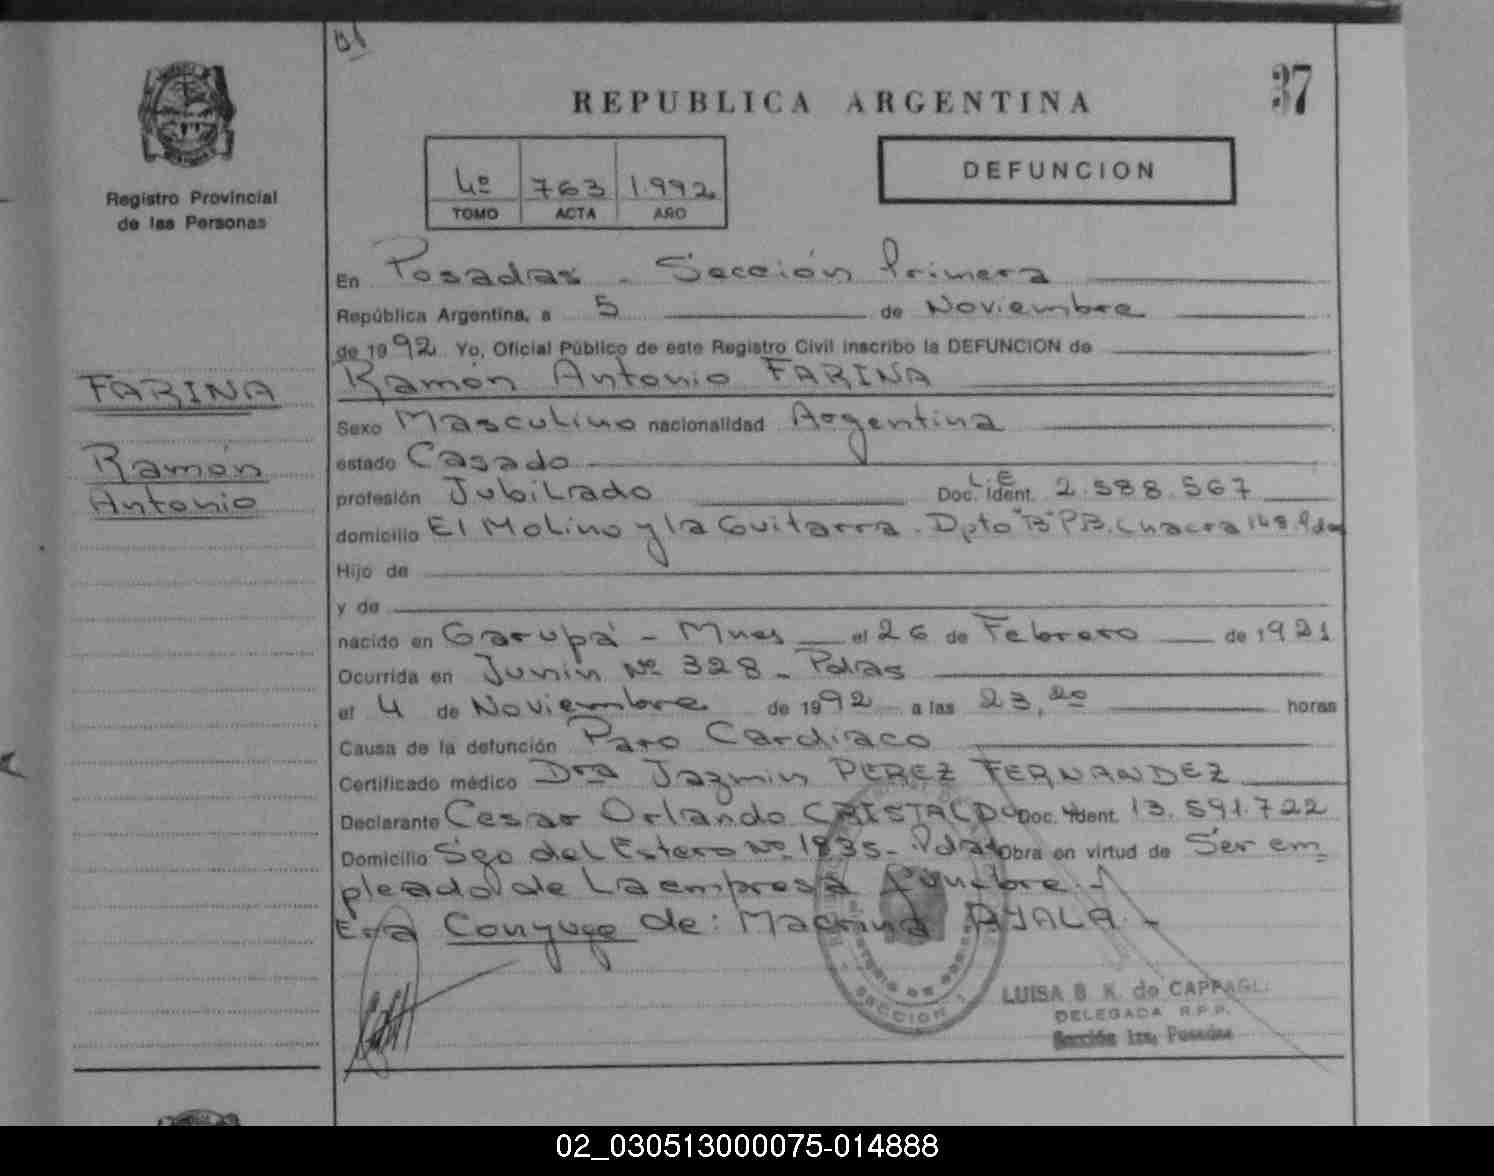 37
REPUBLICA ARGENTINA
Registro Provincial
de las Personas
4º 763 1.992
TOMO ACTA AÑO
DEFUNCION
En Posadas - Sección Primera
República Argentina, a 5 de Noviembre
de 1992 Yo, Oficial Público de este Registro Civil inscribo la DEFUNCION de
FARINA
Ramón Antonio FARINA
Sexo Masculino nacionalidad Argentina
Ramón
estado Casado
Antonio
profesión Jubilado Doc. Ident. L.E 2.588.567
domicilio El Molino y la Guitarra. Dpto "B" PB. Chacra 148. Pdas
Hijo de
y de
nacido en Garupá - Mnes el 26 de Febrero de 1921
Ocurrida en Junin Nº 328 - Pdas
el 4 de Noviembre de 1992 a las 23,20 horas
Causa de la defunción Paro Cardiaco
Certificado médico Dra Jazmin PEREZ FERNANDEZ
Declarante Cesar Orlando CRISTALDO Doc. Ident. 13.591.722
Domicilio Sgo del Estero Nº 1835 - Pdas Obra en virtud de Ser em=
pleado de La empresa funebre.-
Era Conyuge de: Macrina AYALA.-
SECCION 1
LUISA B K. de CAPPAGLI
DELEGADA R.P.P.
Sección 1ra. Posadas
02_030513000075-014888